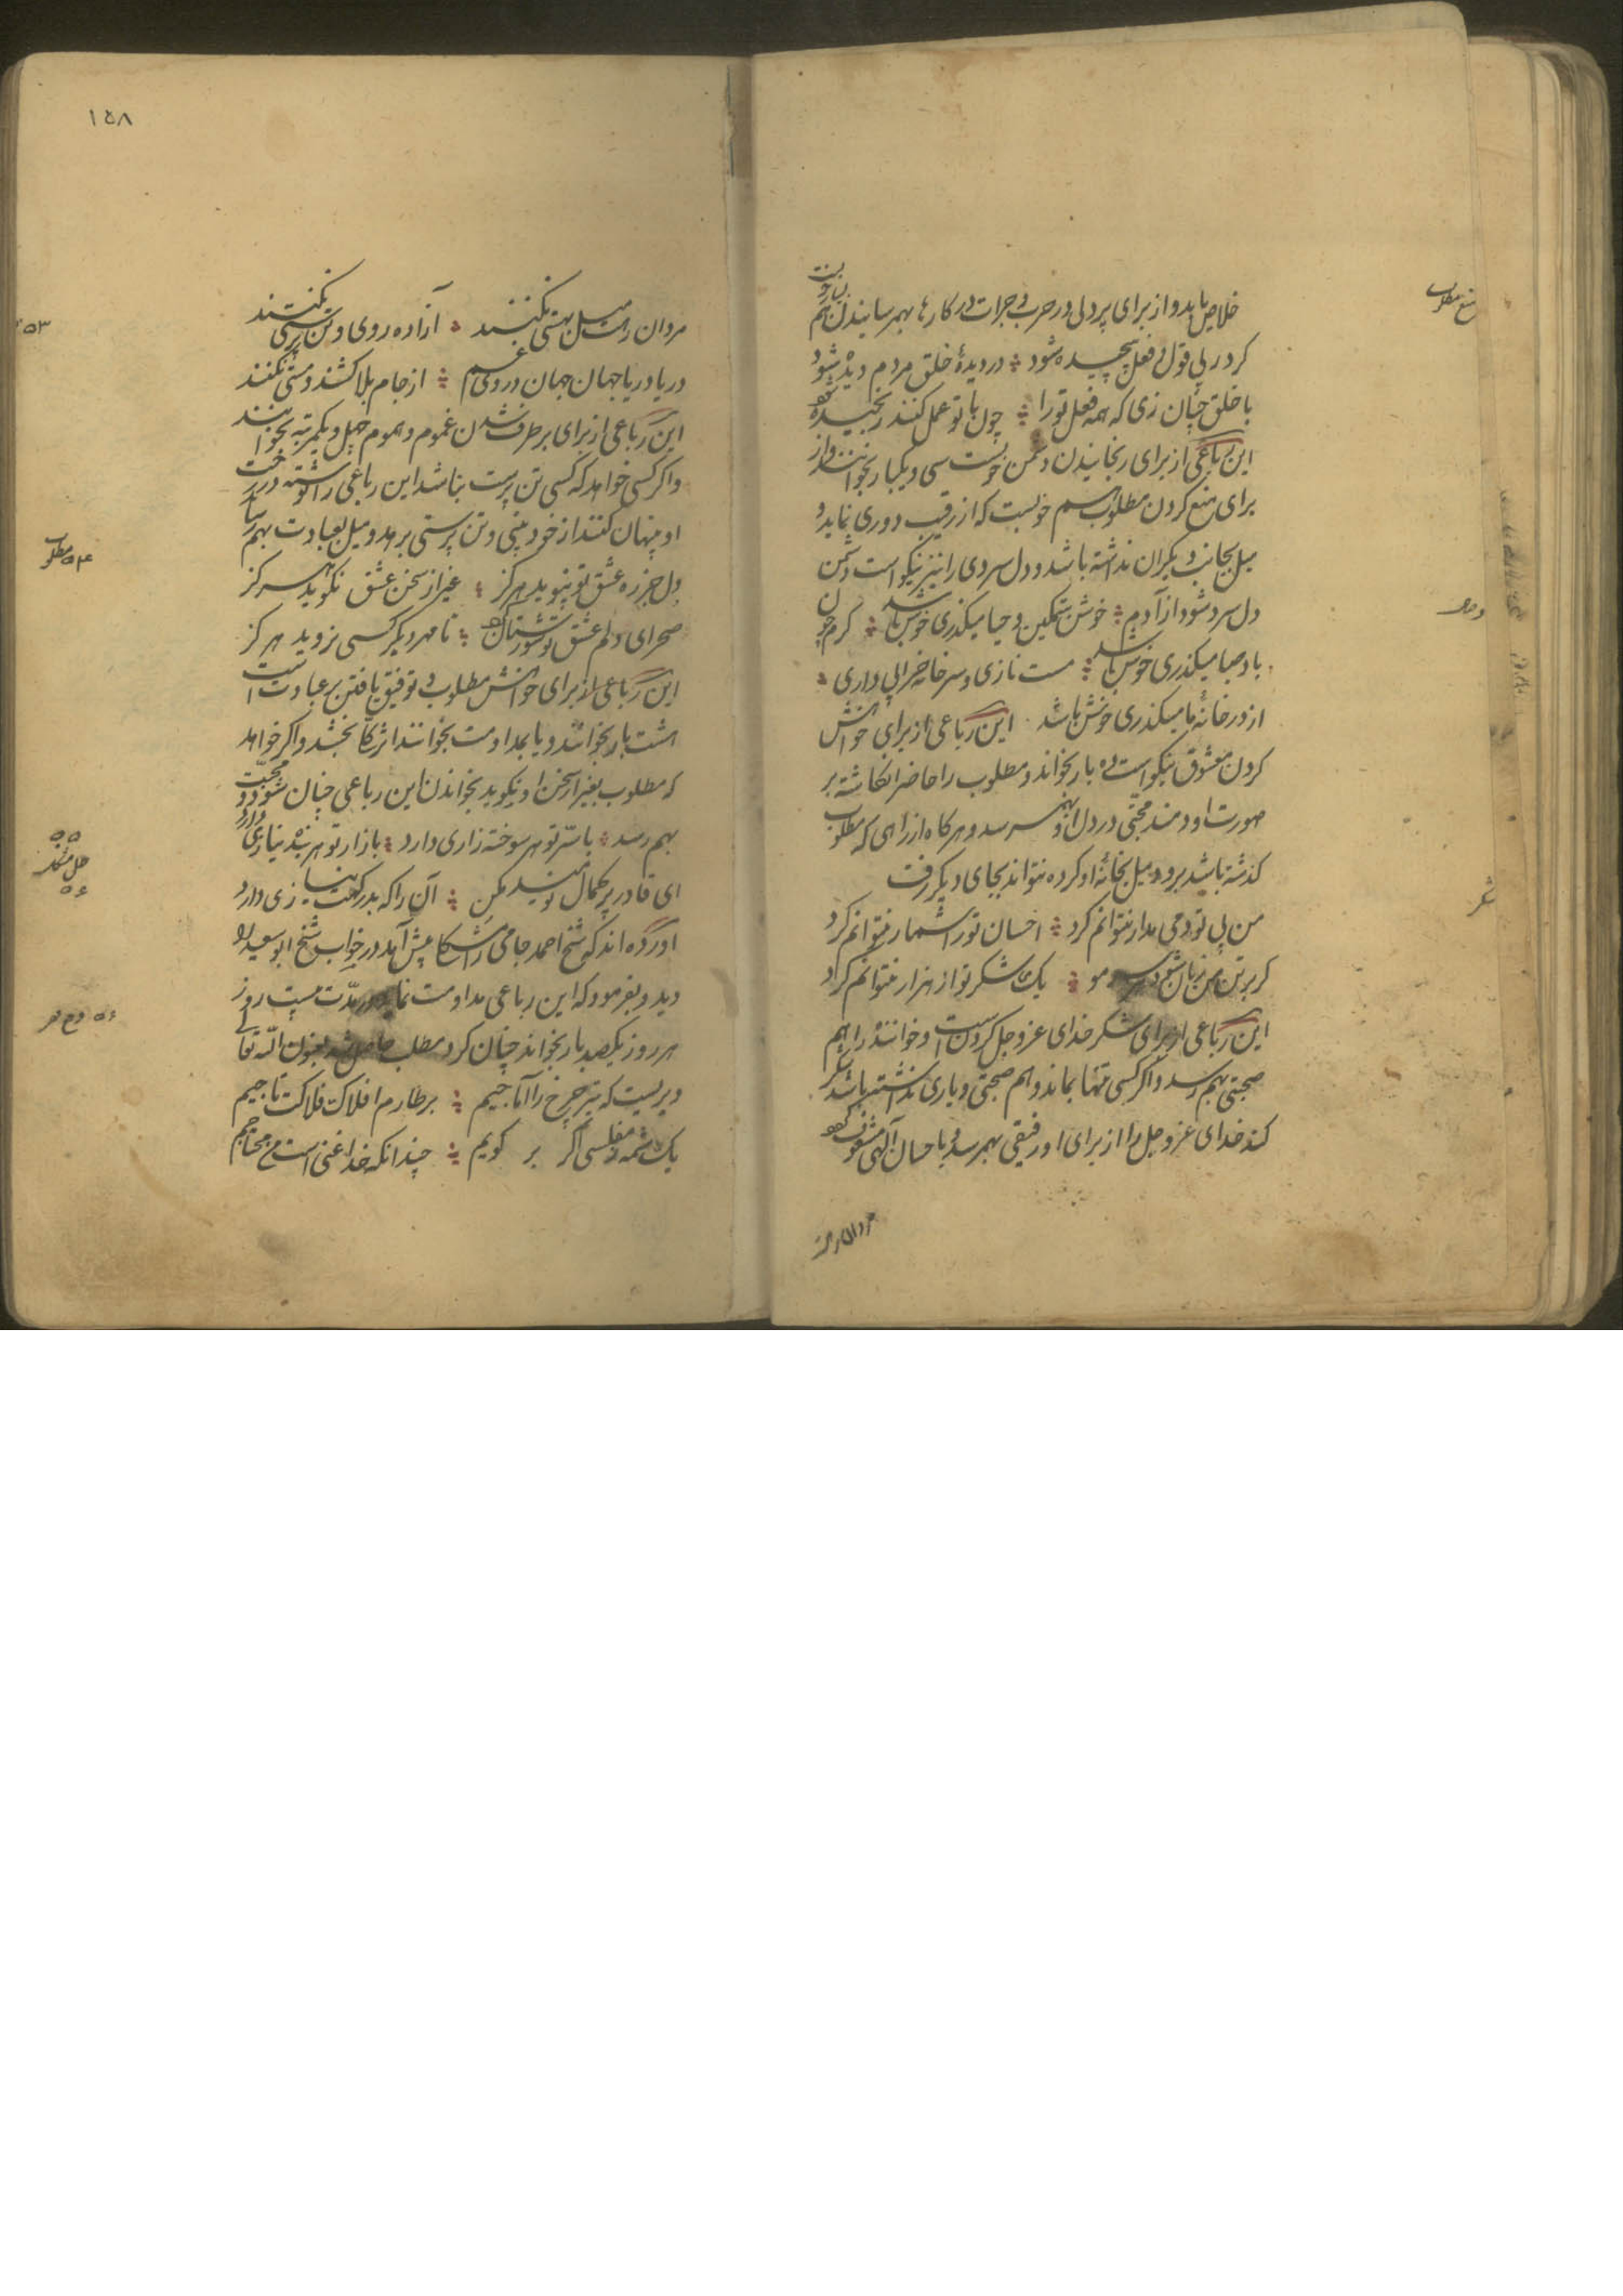 خلاص یابد و از برای پردلی در حرب و جرات در کارها بهمرسانیدن هم
کر در پی قول و فعل پیچیده شود در دیدهٔ خلق مردم دیده شود
با خلق چنان زی که همه فعل تو را چون با تو عمل کنند رنجیده شود
این رباعی از برای رنجانیدن دشمن خوبست سی و یکبار بخوانند و از
برای منع کردن مطلوب هم خوبست که از رقیب دوری نماید و
میل بجانب دیکران نداشته باشد و دل سردی را نیز نیکو است دشمن
دل سرد شود از آدم خوش تمکین و حیا میکذری خوش باشد کرم چون
باد صبا میکذری خوش باشد مست نازی و سر خانه خرابی داری
از در خانهٔ ما میکذری خوش باشد این رباعی از برای خواهش
کردن معشوق نیکو است ده بار بخواند و مطلوب را حاضر انکاشته بر
صورت او دمند محبتی در دل او بهمرسد و هرکاه از راهی که مطلوب
کذشته باشد برود میل بخانهٔ او کرده نتواند بجای دیکر رفت
من بی تو دمی قرار نتوانم کرد احسان تو را شمار نتوانم کرد
کر بر تن من زبان شود هر مو یک شکر تو از هزار نتوانم کرد
این رباعی از برای شکر خدای عز و جل کردن است و خواننده را هم
صحبتی بهم رسد و اکر کسی تنها بماند و هم صحبتی و یاری نداشته باشد شکر
کند خدای عز و جل را از برای او رفیقی بهمرسد و با حسان آلهی مشعوف شود
مردان رهت
منع مطلوب
شکر
١٥٨
مردان رهت میل بهستی نکنند آزاده روی و تن پرستی نکنند
دریا دریا جهان جهان در روی غم از جام بلا کشند و مستی نکنند
این رباعی از برای بر طرف شدن غموم و هموم چهل و یکمرتبه بخوانند
و اکر کسی خواهد که کسی تن پرست نباشد این رباعی را نوشته در رخت
او پنهان کنند از خود بینی و تن پرستی برهد و میل بعبادت بهمرساند
دل جز ره عشق تو نپوید هرکز غیر از سخن عشق نکوید هرکز
صحرای دلم عشق تو شورستان کرد تا مهر دیکر کسی نروید هرکز
این رباعی از برای خواهش مطلوب و توفیق یافتن بر عبادت است
هشت بار بخوانند و یا بمداومت بخوانند اثرها بخشد و اکر خواهد
که مطلوب بغیر از سخن او نکوید بخواندن این رباعی چنان شود و محبت
بهم رسد با سر تو هر سوخته زاری دارد بازار تو هر بنده نیازی دارد
ای قادر پر کمال نومید مکن آن را که بدرکهت نیازی دارد
اورده اند که شیخ احمد جامی را مشکل پیش آمد در خواب شیخ ابوسعید را
دید و بفرمود که این رباعی مداومت نماید در مدت بیست روز
هر روز یکصد بار بخواند چنان کرد مطلب حاصل شد بعون الله تعالی
دیریست که تیر چرخ را آماجیم بر طارم افلاک فلاکت تاجیم
یک شمه ز مفلسی اکر بر کویم چندانکه خدا غنی است من محتاجیم
٥٣
٥٤ مطلوب
٥٥
حل مشکلات
٥٦